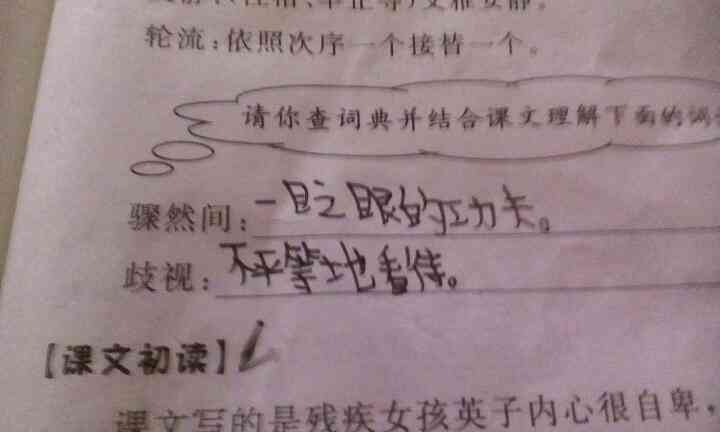 文雅安静。
轮流:依照次序一个接替一个。
请你查词典并结合课文理解下面的词
骤然间:一眨眼的功夫。
歧视:不平等地看待。
【课文初读】
课文写的是残疾女孩英子内心很自卑,